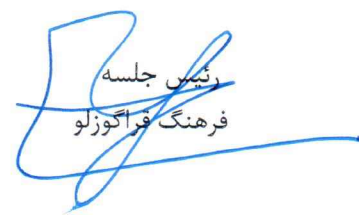 رئیس جلسه
فرهنگ قراگوزلو